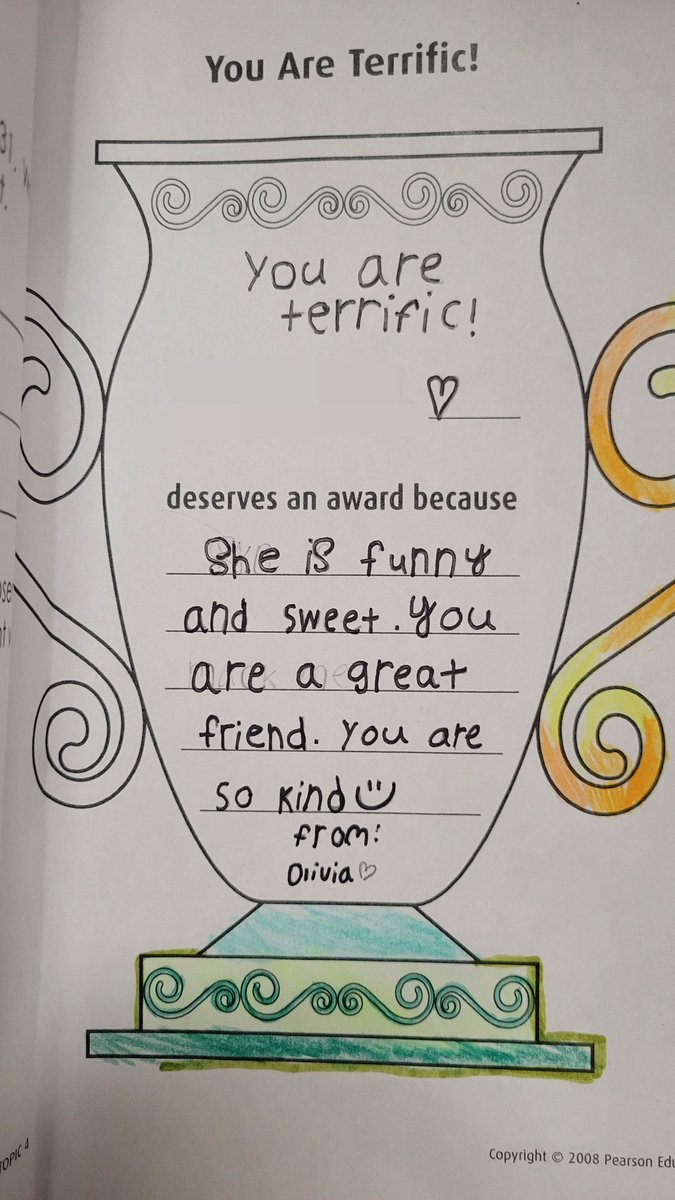 You Are Terrific!
You are
terrific!
deserves an award because
She is funny
and sweet. You
are a great
friend. You are
so kind
from:
Olivia
TOPIC 4
Copyright © 2008 Pearson